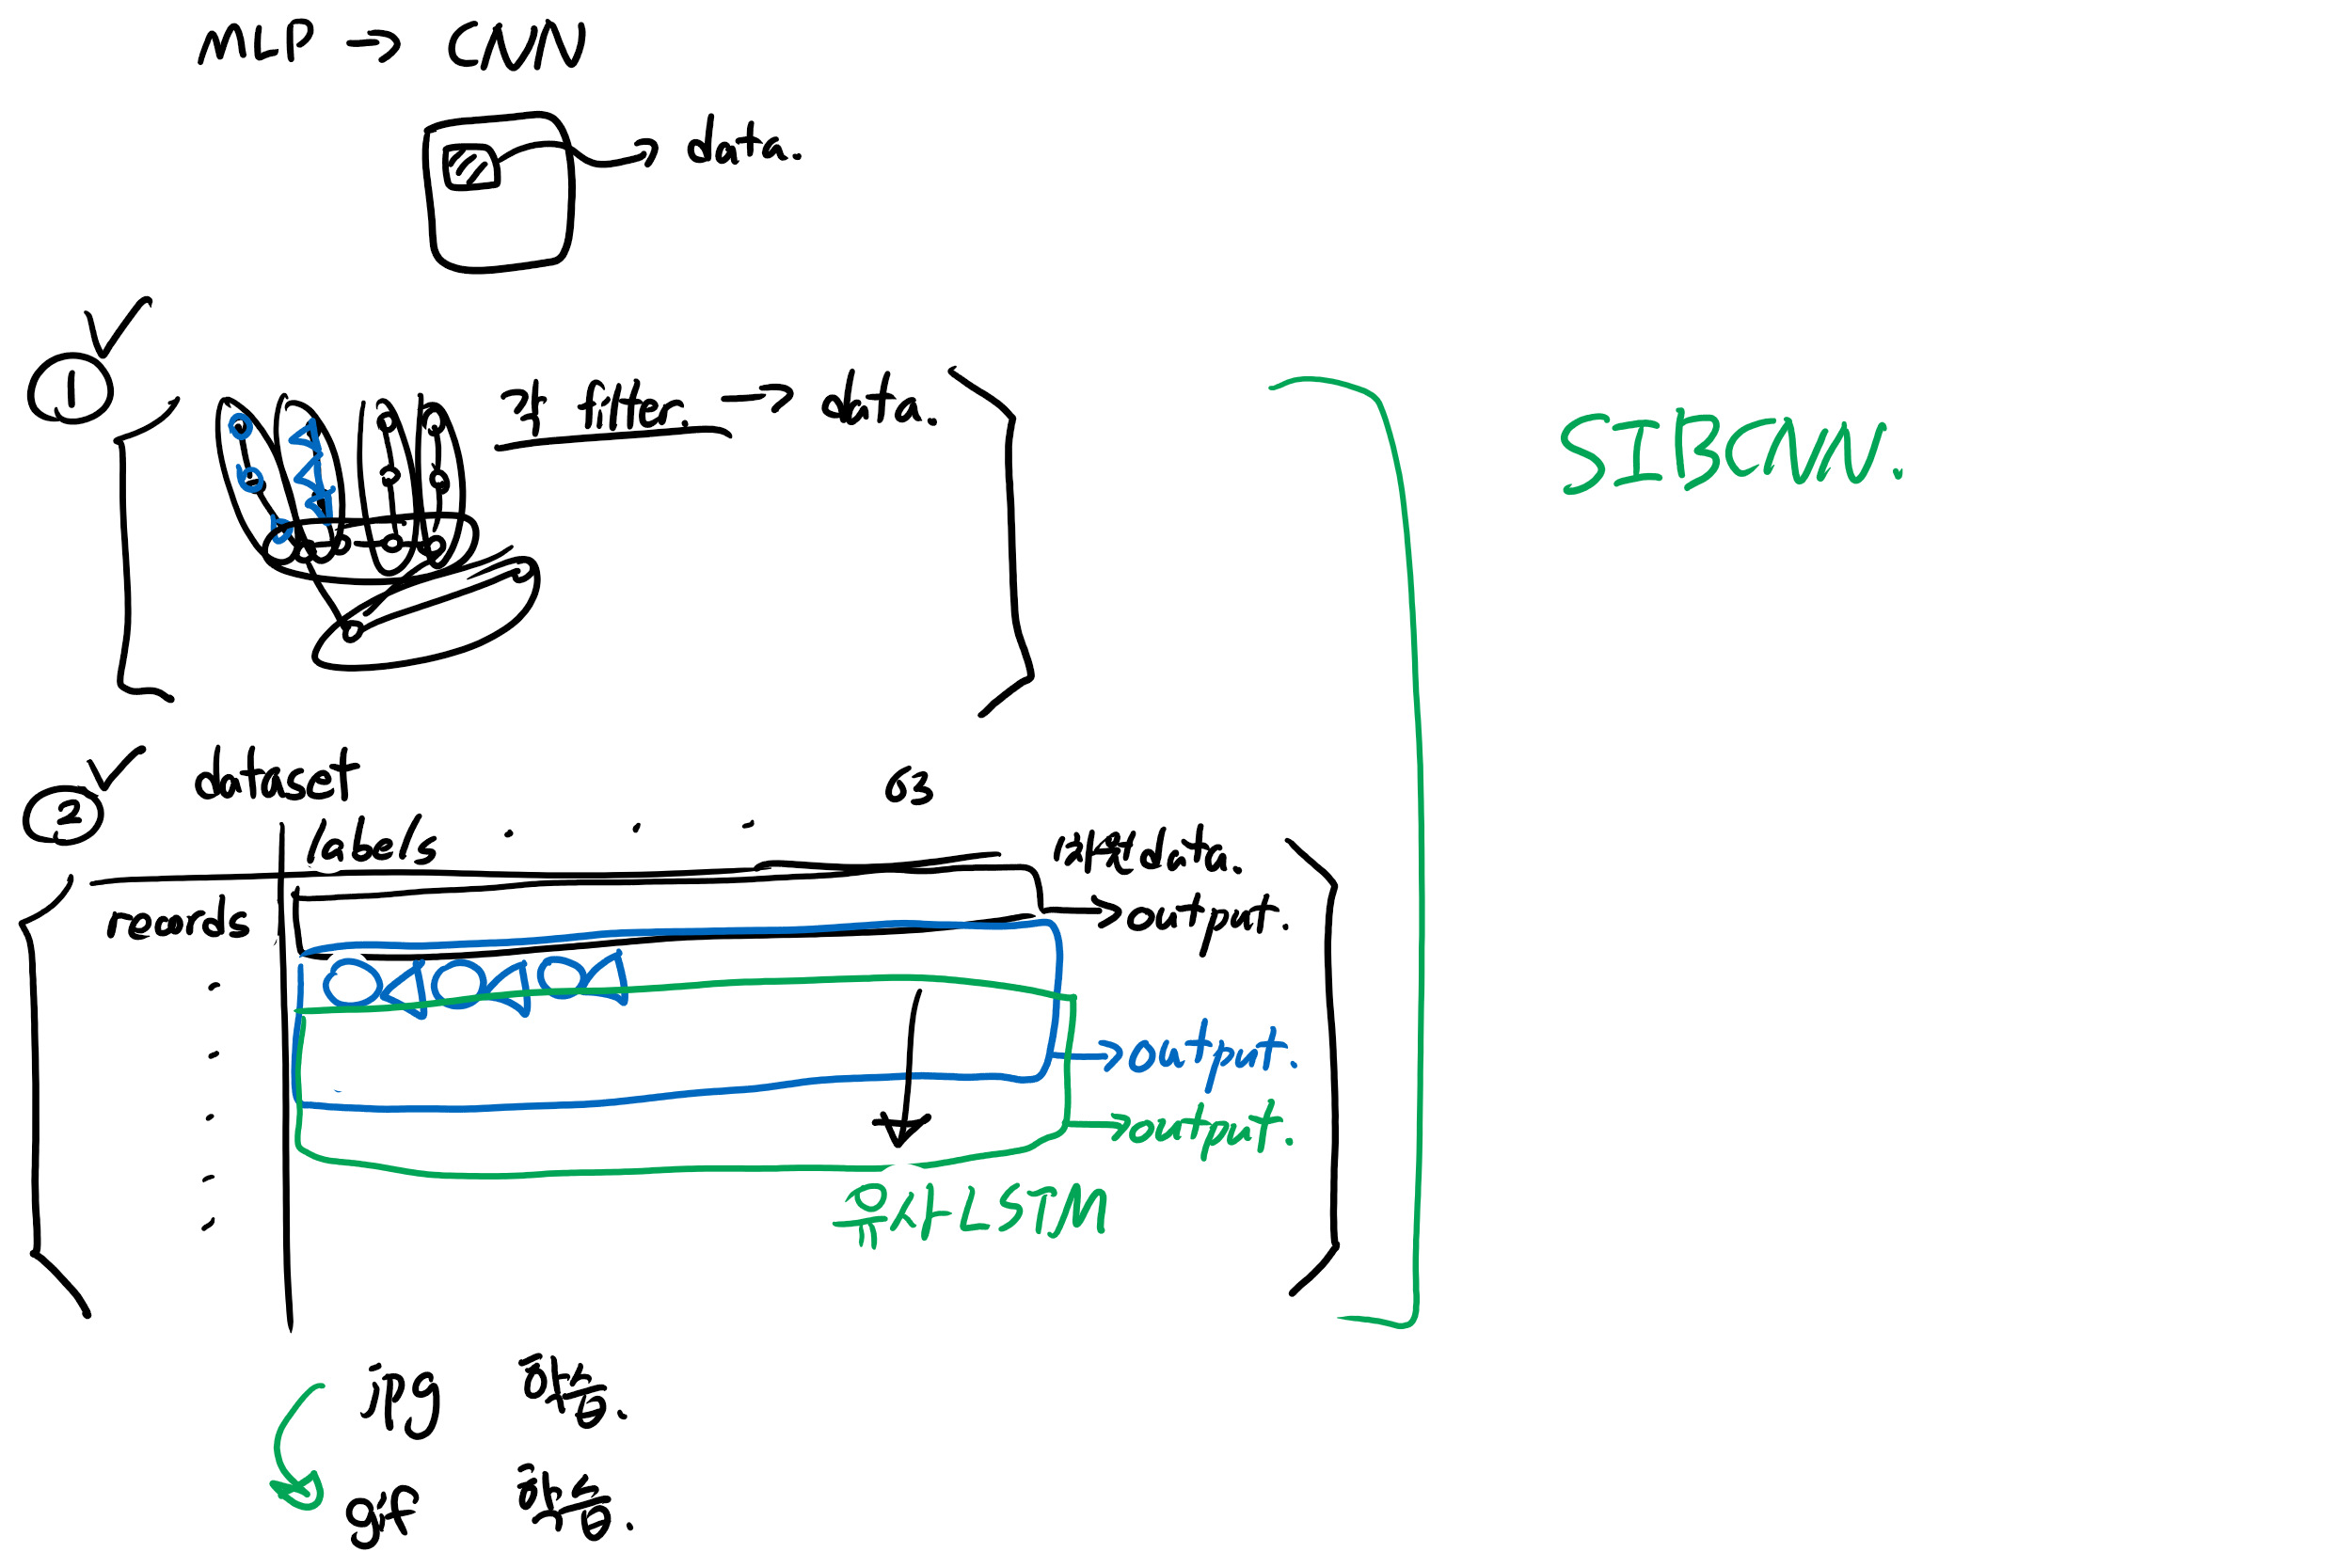 MLP → CNN
→ data.
①
각 filter. → data.
SIBCNN.
② dataset
63
labels . . .
data.
records
→ output.
→ output.
→ output.
유사 LSTM
jpg 학습.
gif 학습.